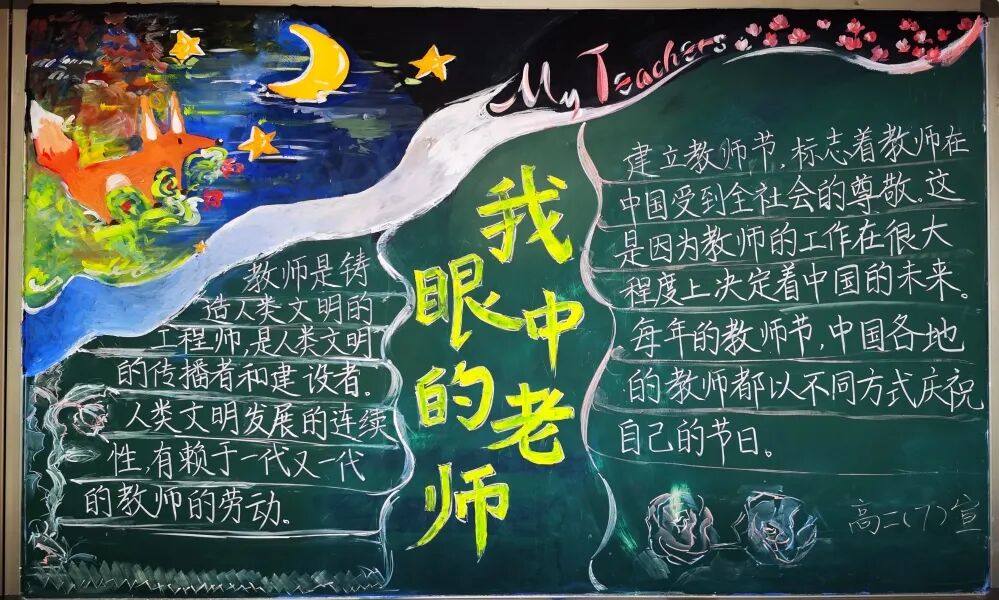 My Teachers
我眼中的老师
教师是铸
造人类文明的
工程师,是人类文明
的传播者和建设者。
人类文明发展的连续
性,有赖于一代又一代
的教师的劳动。
建立教师节,标志着教师在
中国受到全社会的尊敬。这
是因为教师的工作在很大
程度上决定着中国的未来。
每年的教师节,中国各地
的教师都以不同方式庆祝
自己的节日。
高二(7)宣